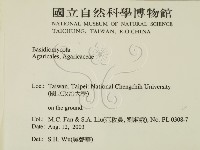 國立自然科學博物館
NATIONAL MUSEUM OF NATURAL SCIENCE
TAICHUNG, TAIWAN, R.O.CHINA
Basidiomycota
Agaricales, Agaricaceae
Loc.: Taiwan, Taipei, National Chengchih University
on the ground.
Col.: M.C. Fan & S.A. Liu No. PL 0308-7
Date: Aug. 12, 2001
Det.: S.H. Wu